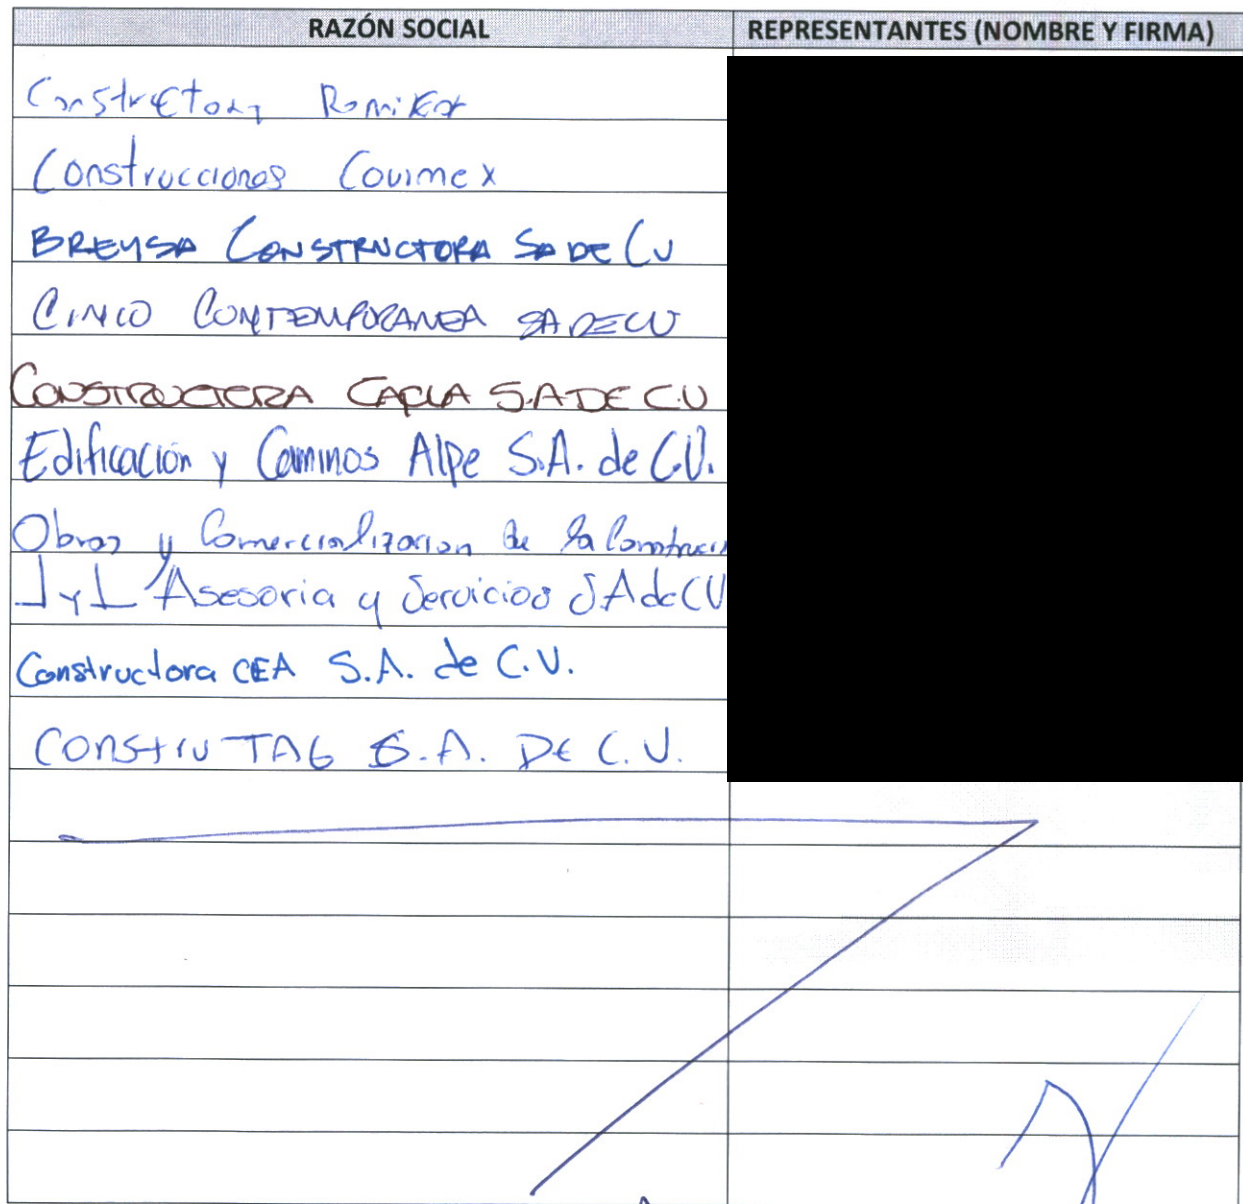 RAZÓN SOCIAL REPRESENTANTES (NOMBRE Y FIRMA)
Constructora
Construcciones Covimex
BREYSA CONSTRUCTORA SA DE CV
CINCO CONTEMPORANEA SA DE CV
CONSTRUCTORA CAPLA S.A DE C.V
Edificación y Caminos Alpe S.A. de C.V.
Obras y Comercialización de la Construcci
J y L Asesoria y Servicios SA de CV
Constructora CEA S.A. de C.V.
CONSTRU TAG S.A. DE C.V.